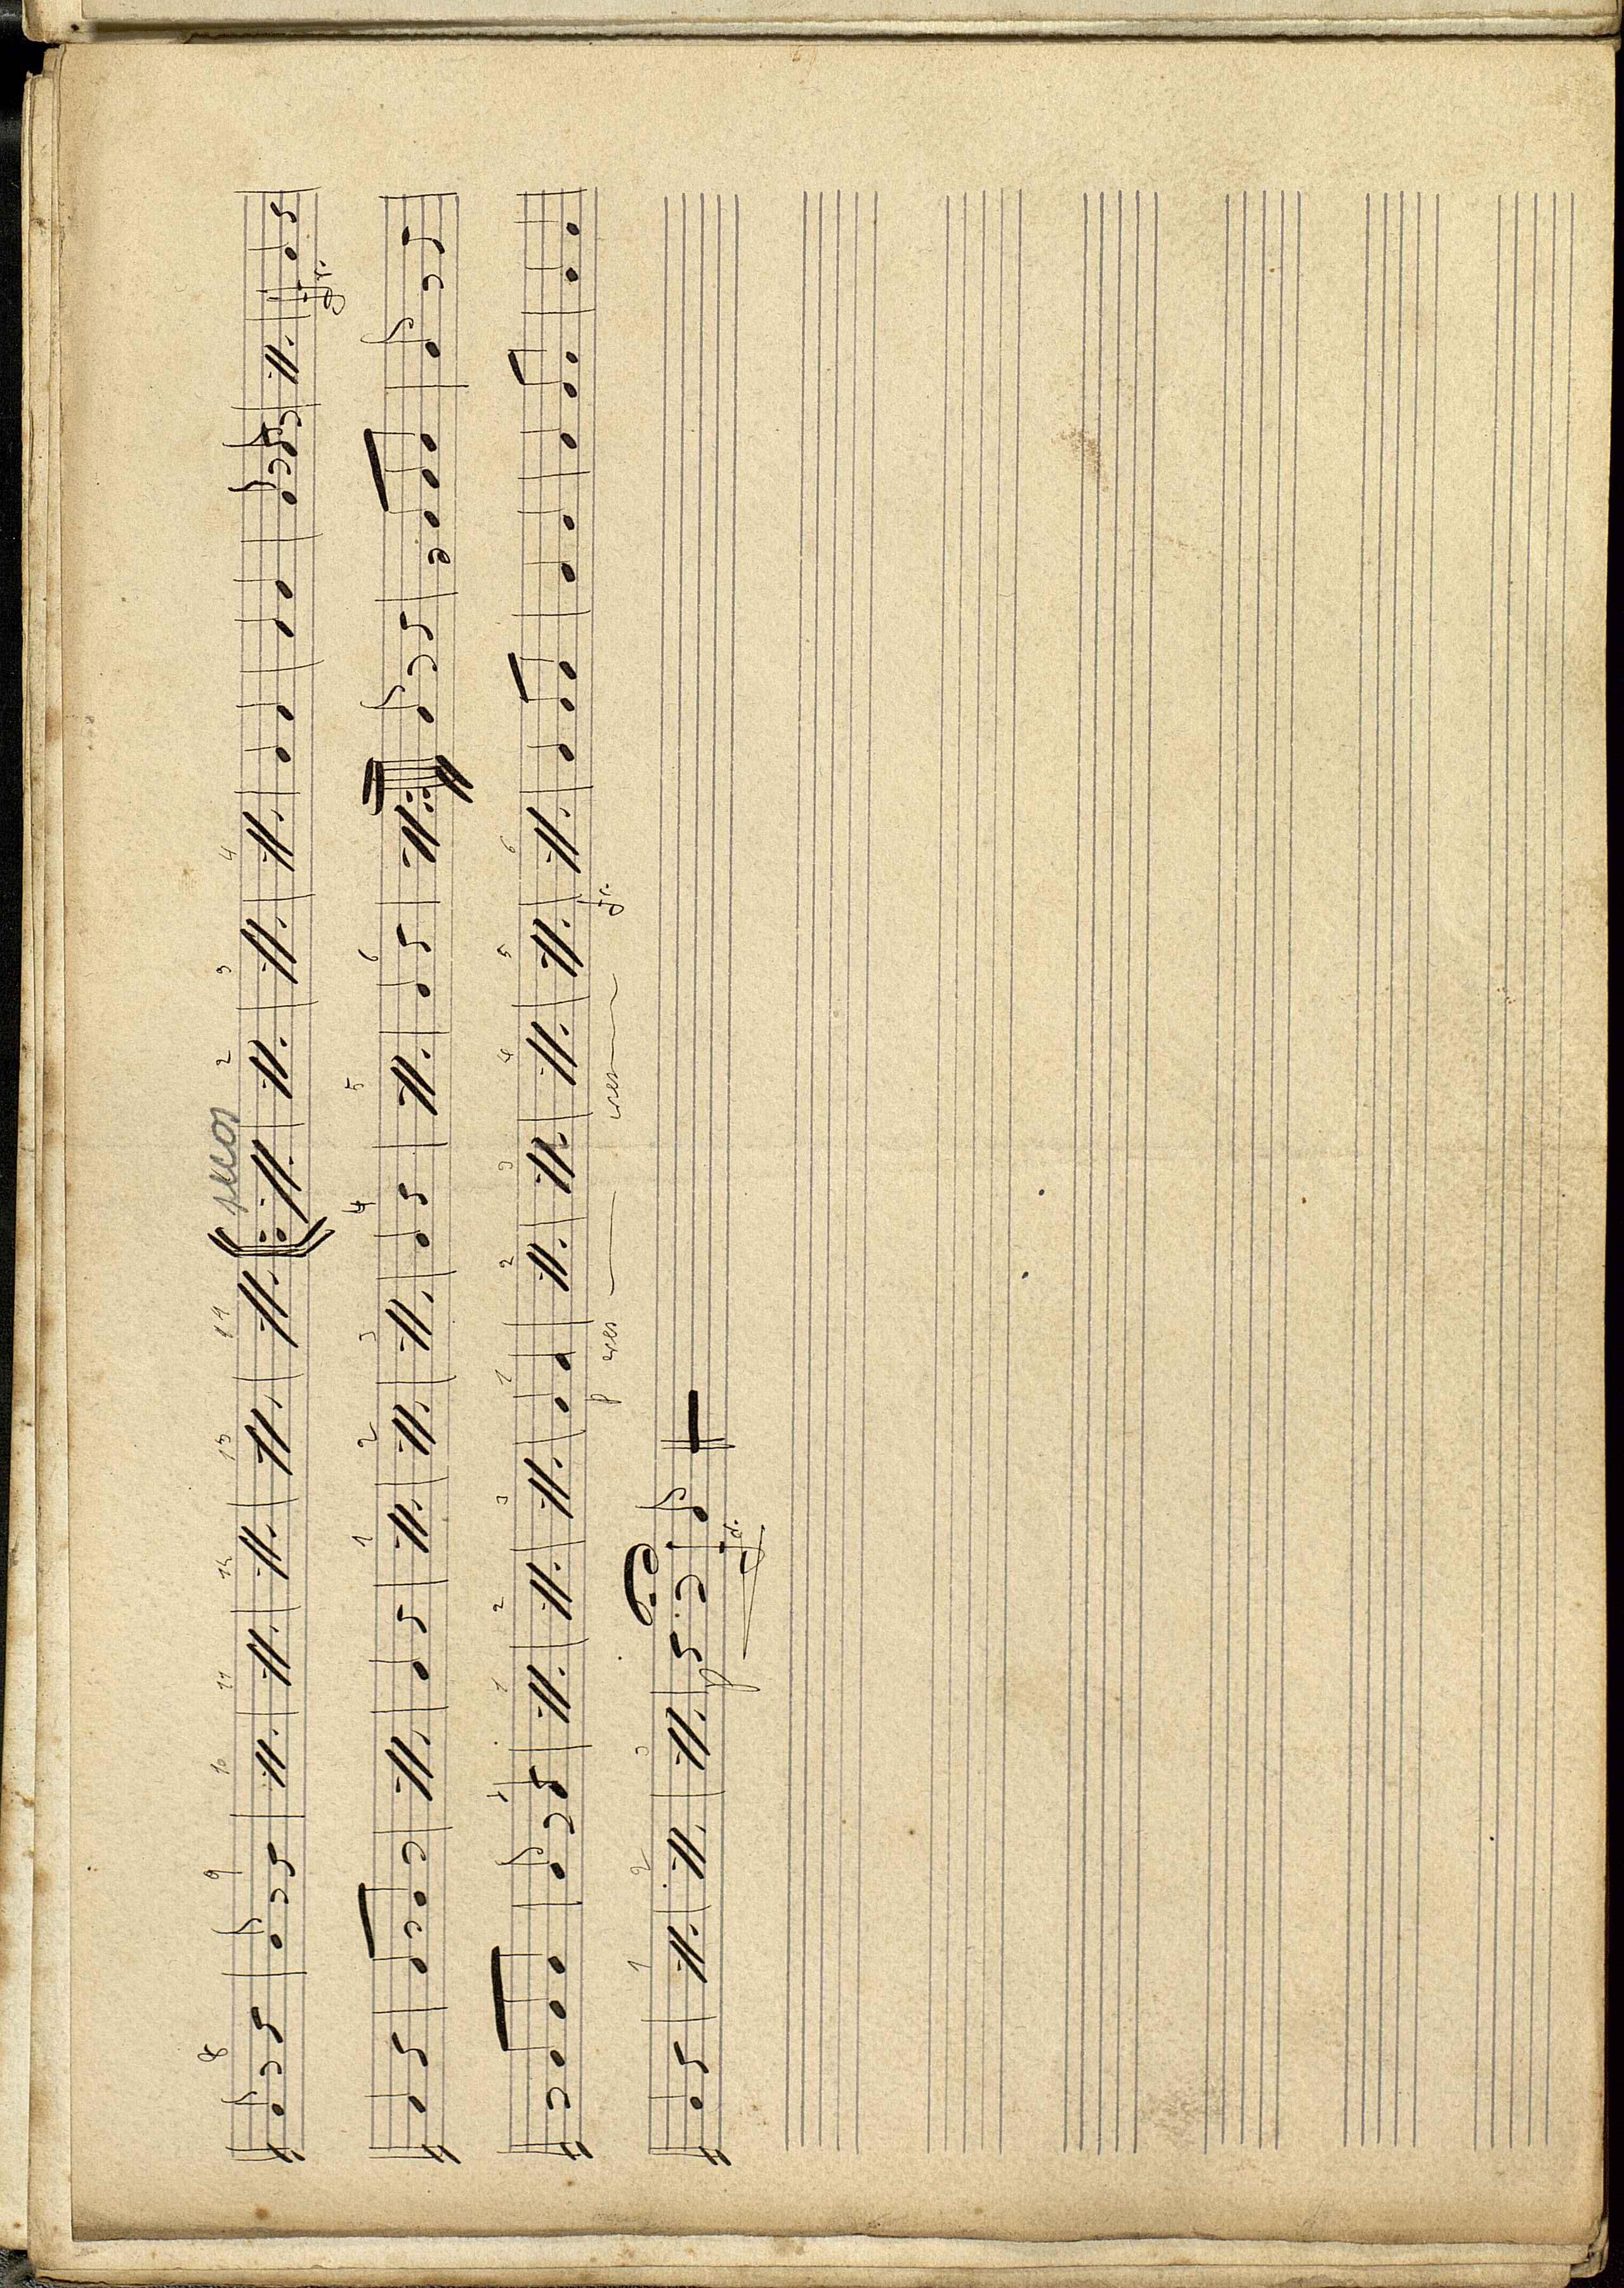 8 9 10 11 12 13 14 secos 2 3 4
gr.
1 2 3 4 5 6
1 2 3 1 2 3 4 5 6
p cres cres fr.
1 2 3
p